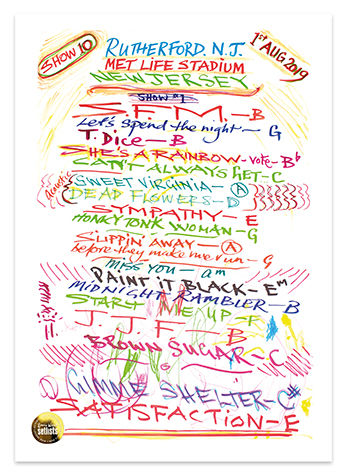 SHOW 10
RUTHERFORD. N.J.
1ST AUG 2019
MET LIFE STADIUM
NEW JERSEY
SHOW #1
S.F.M. - B
Let's spend the night - G
T. Dice - B
SHE'S A RAINBOW - vote - Bb
CAN'T ALWAYS GET - C
acoustic
SWEET VIRGINIA - A
DEAD FLOWERS - D
SYMPATHY - E
HONKY TONK WOMAN - G
SLIPPIN' AWAY - A
before they make me run - G
MISS YOU - am
PAINT IT BLACK - Em
MIDNIGHT RAMBLER - B
START ME UP - F
J. J. F - B
BROWN SUGAR - C
GIMME SHELTER - C#
SATISFACTION - E
setlists